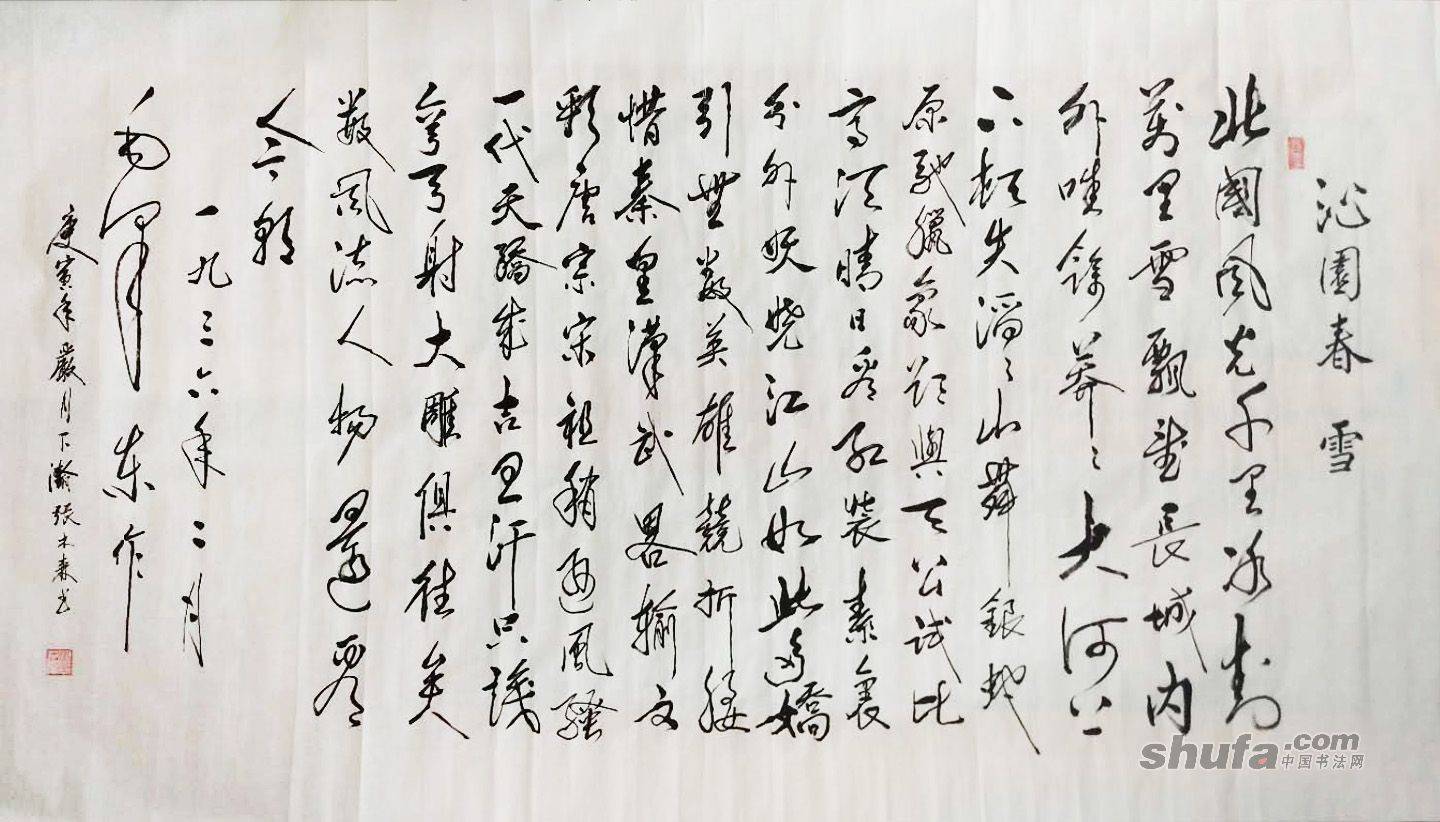 沁園春 雪
北國風光千里冰封
萬里雪飄望長城内
外唯餘莽〻大河上
下頓失滔〻山舞銀蛇
原馳臘象欲與天公試比
高須晴日看紅裝素裹
分外妖嬈江山如此多嬌
引無數英雄競折腰
惜秦皇漢武畧輸文
彩唐宗宋祖稍遜風騷
一代天驕成吉思汗只識
彎弓射大雕俱往矣
數風流人物還看
今朝
一九三六年二月
毛澤東作
庚寅年嚴月下瀚張木森书
shufa.com
中国书法网